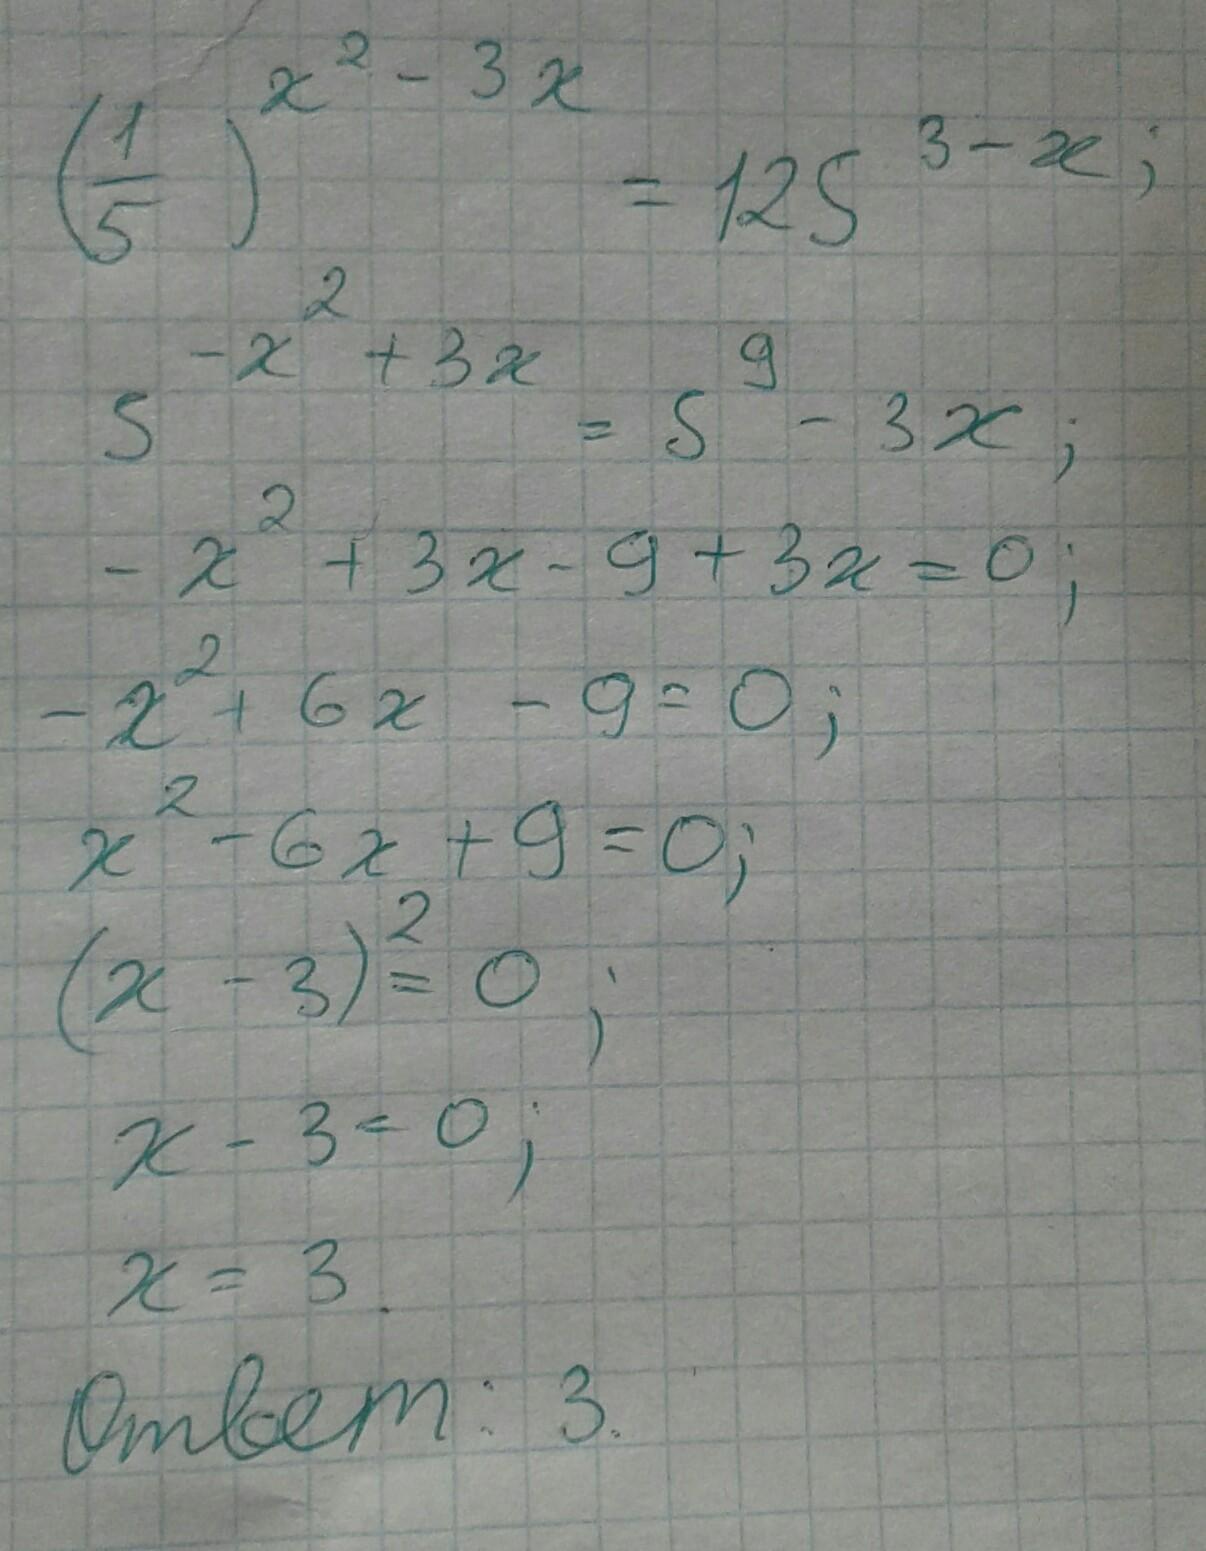 (1/5)^(x² - 3x) = 125^(3 - x);
5^(-x² + 3x) = 5^9 - 3x;
-x² + 3x - 9 + 3x = 0;
-x² + 6x - 9 = 0;
x² - 6x + 9 = 0;
(x - 3)² = 0;
x - 3 = 0;
x = 3.
Ответ: 3.